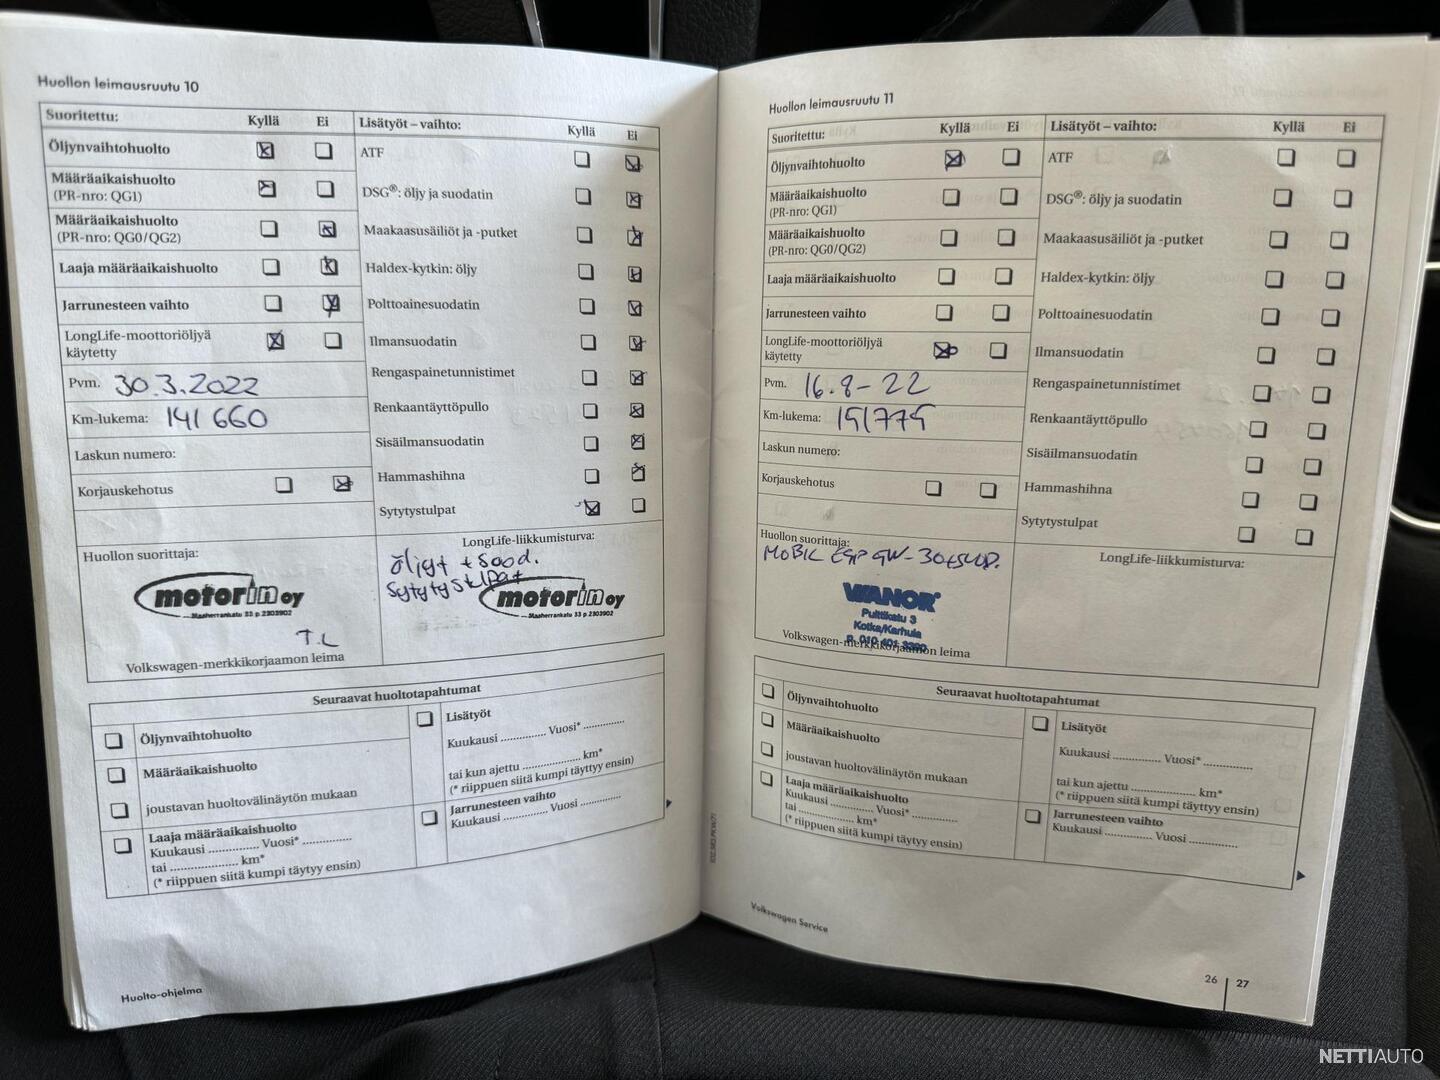 Huollon leimausruutu 10
Suoritettu: Kyllä Ei
Öljynvaihtohuolto
Määräaikaishuolto
(PR-nro: QG1)
Määräaikaishuolto
(PR-nro: QG0/QG2)
Laaja määräaikaishuolto
Jarrunesteen vaihto
LongLife-moottoriöljyä
käytetty
Pvm. 30.3.2022
Km-lukema: 141 660
Laskun numero:
Korjauskehotus
Lisätyöt – vaihto: Kyllä Ei
ATF
DSG®: öljy ja suodatin
Maakaasusäiliöt ja -putket
Haldex-kytkin: öljy
Polttoainesuodatin
Ilmansuodatin
Rengaspainetunnistimet
Renkaantäyttöpullo
Sisäilmansuodatin
Hammashihna
Sytytystulpat
Huollon suorittaja:
motorin oy
Maaherrankatu 33 p.2303902
T.L
Volkswagen-merkkikorjaamon leima
LongLife-liikkumisturva:
öljyt + suod.
Sytytystulpat
motorin oy
Maaherrankatu 33 p.2303902
Seuraavat huoltotapahtumat
Öljynvaihtohuolto
Määräaikaishuolto
joustavan huoltovälinäytön mukaan
Laaja määräaikaishuolto
Kuukausi .............. Vuosi* ..............
tai ................... km*
(* riippuen siitä kumpi täytyy ensin)
Lisätyöt
Kuukausi ............. Vuosi* ............
tai kun ajettu ................... km*
(* riippuen siitä kumpi täytyy ensin)
Jarrunesteen vaihto
Kuukausi ............. Vuosi ............
Huolto-ohjelma
Huollon leimausruutu 11
Suoritettu: Kyllä Ei
Öljynvaihtohuolto
Määräaikaishuolto
(PR-nro: QG1)
Määräaikaishuolto
(PR-nro: QG0/QG2)
Laaja määräaikaishuolto
Jarrunesteen vaihto
LongLife-moottoriöljyä
käytetty
Pvm. 16.8-22
Km-lukema: 151775
Laskun numero:
Korjauskehotus
Lisätyöt – vaihto: Kyllä Ei
ATF
DSG®: öljy ja suodatin
Maakaasusäiliöt ja -putket
Haldex-kytkin: öljy
Polttoainesuodatin
Ilmansuodatin
Rengaspainetunnistimet
Renkaantäyttöpullo
Sisäilmansuodatin
Hammashihna
Sytytystulpat
Huollon suorittaja:
MOBIL ESP 5W-30+SUOD.
WIANOR®
Puttikatu 3
Kotka/Karhula
P. 010 401
Volkswagen-merkkikorjaamon leima
LongLife-liikkumisturva:
Seuraavat huoltotapahtumat
Öljynvaihtohuolto
Määräaikaishuolto
joustavan huoltovälinäytön mukaan
Laaja määräaikaishuolto
Kuukausi ............. Vuosi* .............
tai ................... km*
(* riippuen siitä kumpi täytyy ensin)
Lisätyöt
Kuukausi ............. Vuosi* .............
tai kun ajettu ................. km*
(* riippuen siitä kumpi täytyy ensin)
Jarrunesteen vaihto
Kuukausi ............. Vuosi .............
Volkswagen Service
26 27
NETTIAUTO